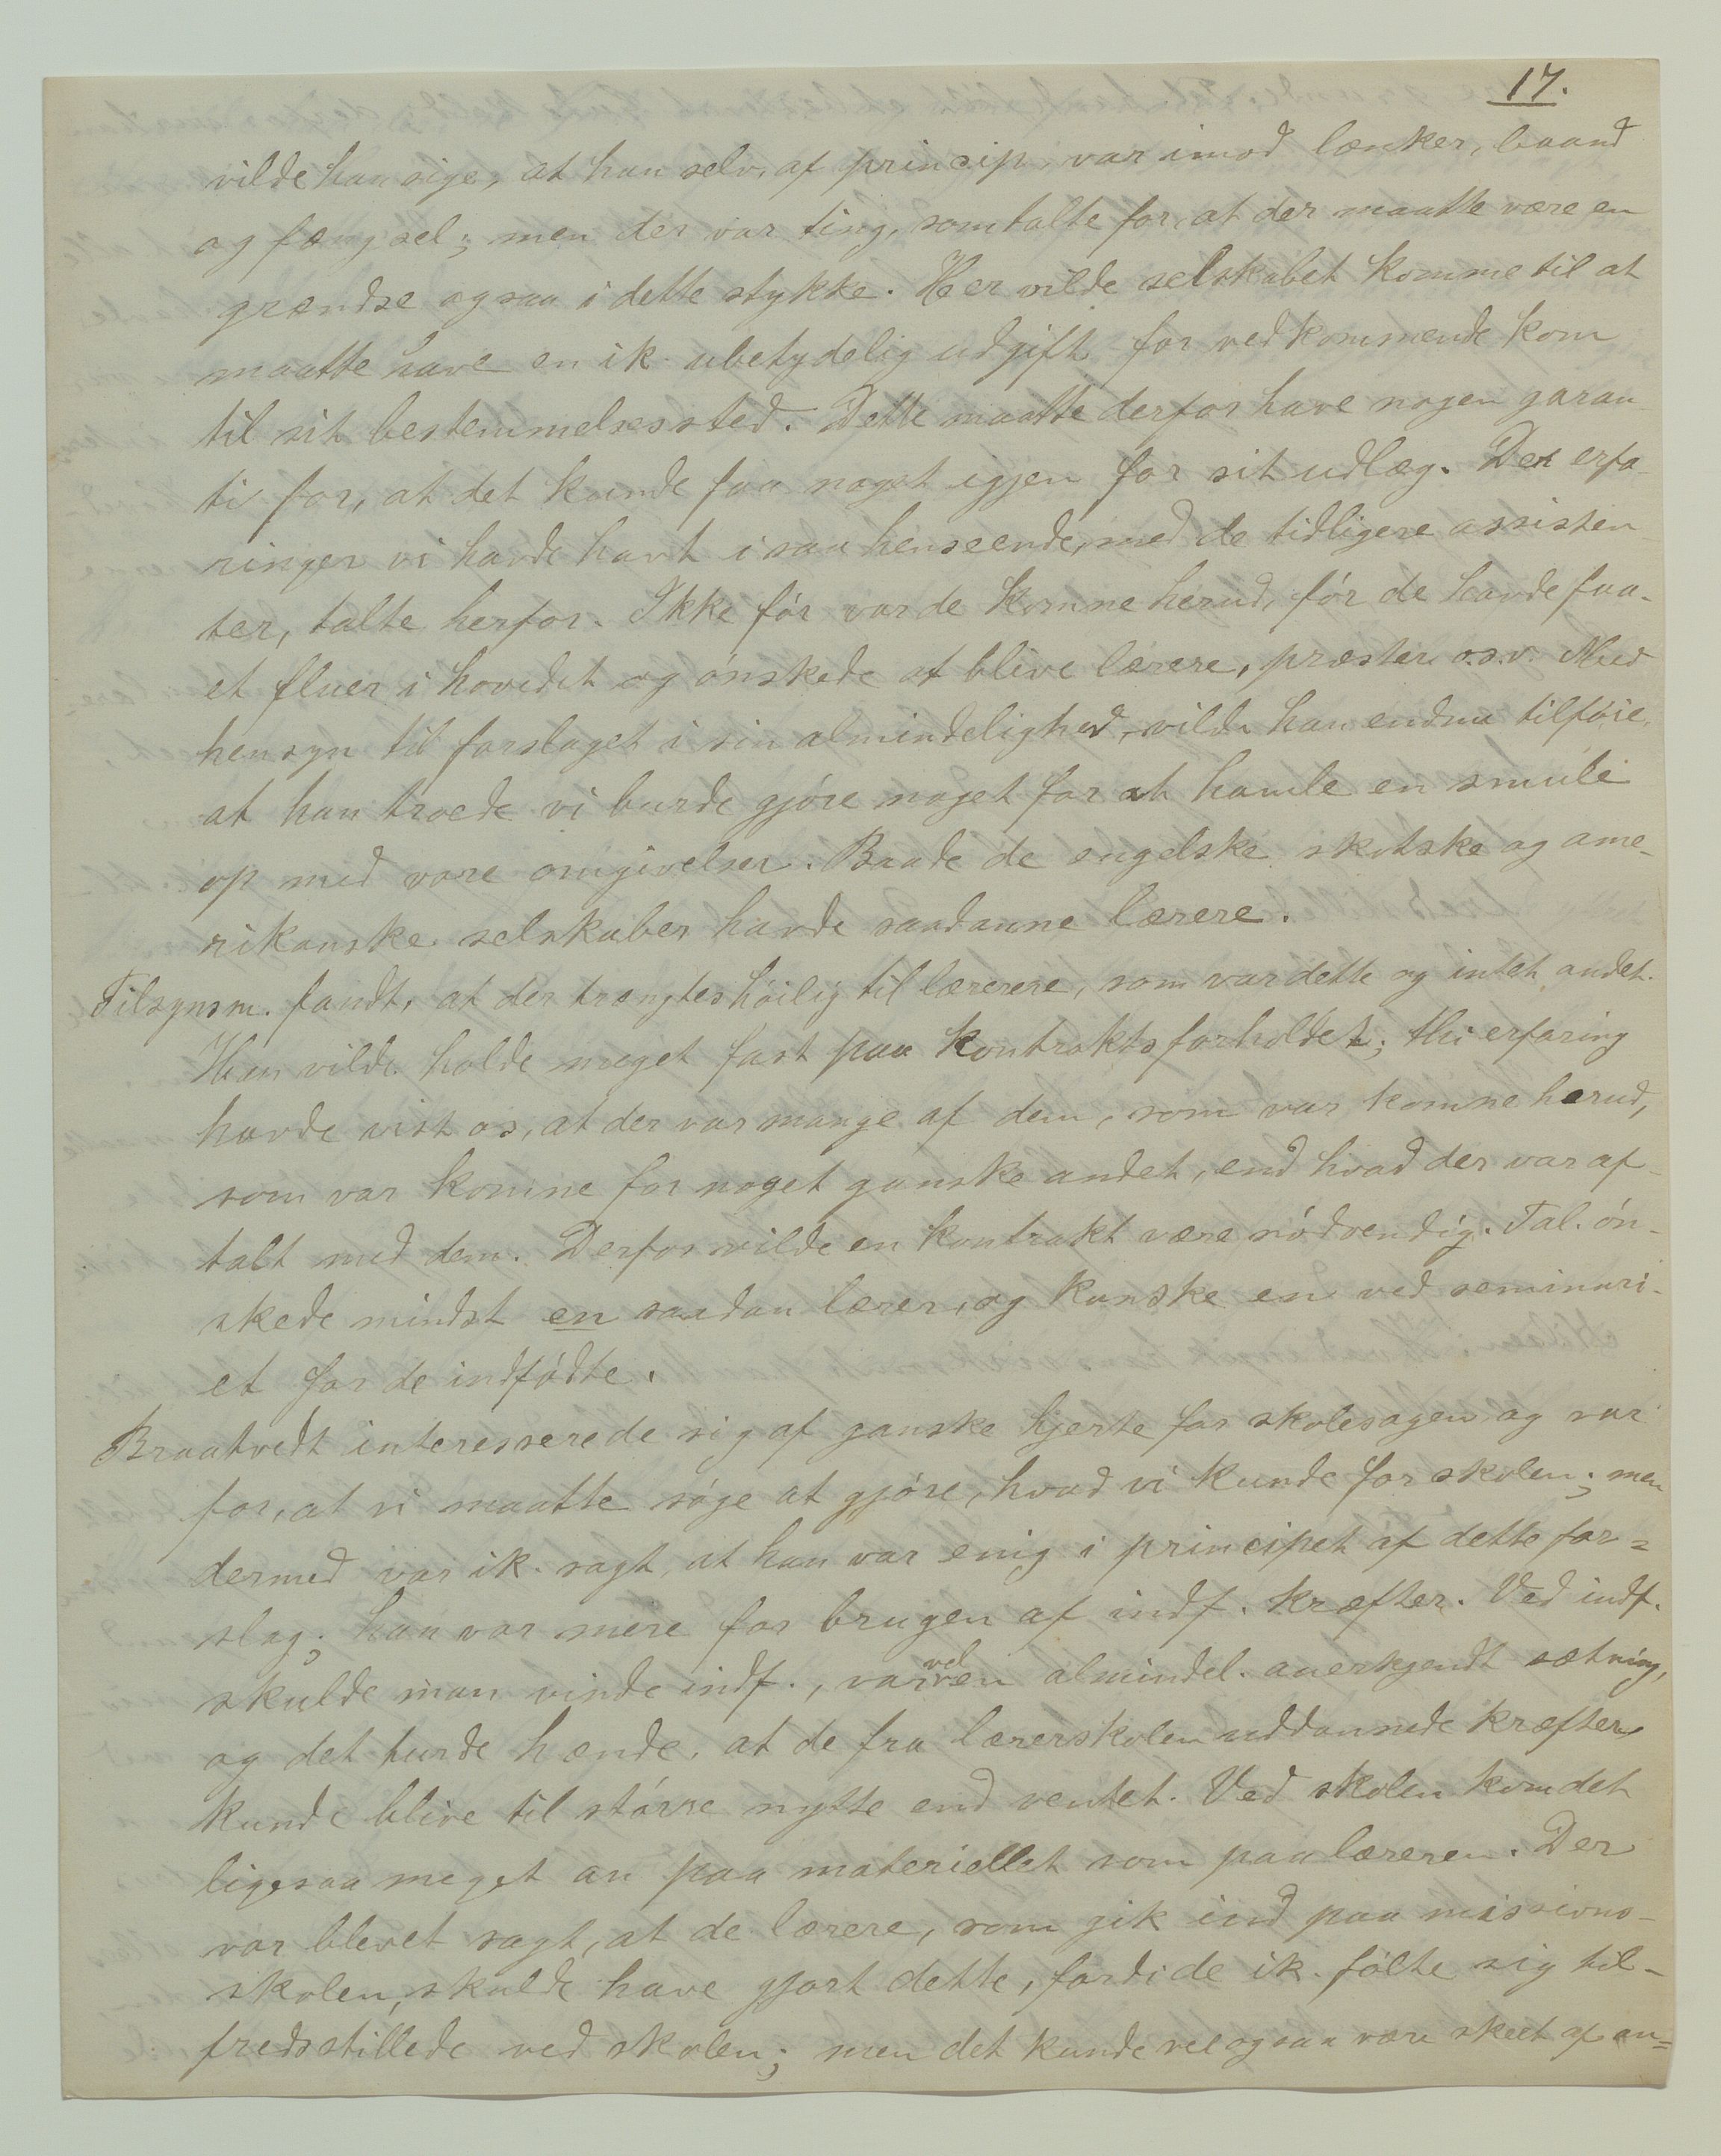 17.
vilde han sige, at han selv, af princip, var imod lænker, baand
og fængsel; men der var ting, som talte for, at der maatte være en
grændse ogsaa i dette stykke. Her vilde selskabet komme til at
maatte have en ik. ubetydelig udgift for vedkommende kom
til sit bestemmelsessted. Dette maatte derfor have nogen garan-
ti for, at det kunde faa noget igjen for sit udlæg. Den erfa-
ringer vi havde havt i saa henseende, med de tidligere assisten-
ter, talte herfor. Ikke før var de komne herud, før de havde faa-
et fluer i hovedet og ønskede at blive lærere, præster o.s.v. Med
hensyn til forslaget i sin almindelighed, vilde han endnu tilføie,
at han troede vi burde gjøre noget for at hamle en smule
op med vore omgivelser. Baade de engelske, skotske og ame-
rikanske selskaber havde saadanne lærere.
Tilsynsm. fandt, at der trængtes høilig til lærerere, som var dette og intet andet.
Han vilde holde meget fast paa kontraktsforholdet; thi erfaring
havde vist os, at der var mange af dem, som var komne herud,
som var komne for noget ganske andet, end hvad der var af-
talt med dem. Derfor vilde en kontrakt være nødvendig. Tal. øn-
skede mindst en saadan lærer, og kanske en ved seminari-
et for de indfødte.
Braatvedt interesserede sig af ganske hjerte for skolesagen og var
for, at vi maatte søge at gjøre, hvad vi kunde for skolen; men
dermed var ik. sagt, at han var enig i principet af dette for=
slag; han var mere for brugen af indf. kræfter. Ved indf.
skulde man vinde indf., var vel en almindel. anerkjendt sætning,
og det turde hænde, at de fra lærerskolen uddannede kræfter,
kunde blive til større nytte end ventet. Ved skolen kom det
ligesaa meget an paa materiellet som paa læreren. Der
var blevet sagt, at de lærere, som gik ind paa missions-
skolen, skulde have gjort dette, fordi de ik. følte sig til-
fredsstillede ved skolen; men det kunde vel ogsaa være skeet af an=